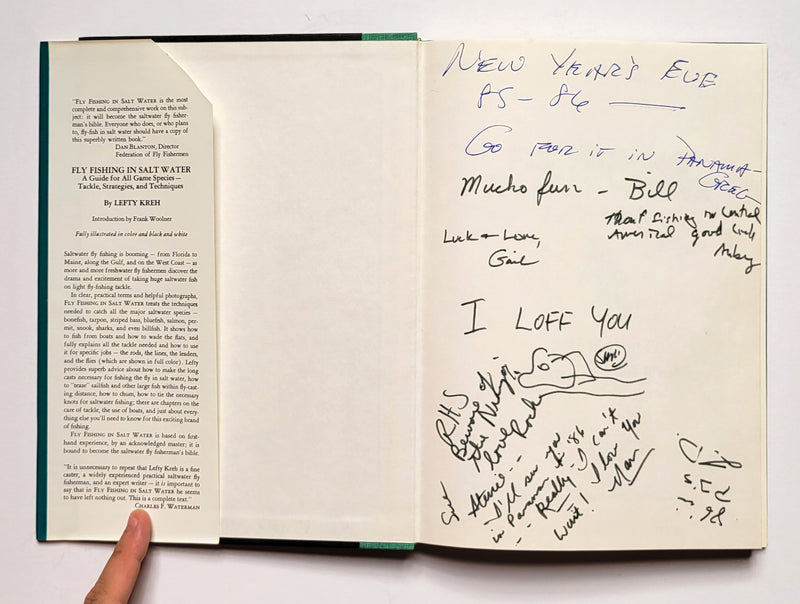 "FLY FISHING IN SALT WATER is the most
complete and comprehensive work on this sub-
ject: it will become the saltwater fly fisher-
man's bible. Everyone who does, or who plans
to, fly-fish in salt water should have a copy of
this superbly written book."
DAN BLANTON, Director
Federation of Fly Fishermen
FLY FISHING IN SALT WATER
A Guide for All Game Species —
Tackle, Strategies, and Techniques
By LEFTY KREH
Introduction by Frank Woolner
Fully illustrated in color and black and white
Saltwater fly fishing is booming — from Florida to
Maine, along the Gulf, and on the West Coast — as
more and more freshwater fly fishermen discover the
drama and excitement of taking huge saltwater fish
on light fly-fishing tackle.
In clear, practical terms and helpful photographs,
FLY FISHING IN SALT WATER treats the techniques
needed to catch all the major saltwater species —
bonefish, tarpon, striped bass, bluefish, salmon, per-
mit, snook, sharks, and even billfish. It shows how
to fish from boats and how to wade the flats, and
fully explains all the tackle needed and how to use
it for specific jobs — the rods, the lines, the leaders,
and the flies (which are shown in full color). Lefty
provides superb advice about how to make the long
casts necessary for fishing the fly in salt water, how
to "tease" sailfish and other large fish within fly-cast-
ing distance, how to chum, how to tie the necessary
knots for saltwater fishing; there are chapters on the
care of tackle, the use of boats, and just about every-
thing else you'll need to know for this exciting brand
of fishing.
FLY FISHING IN SALT WATER is based on first-
hand experience, by an acknowledged master; it is
bound to become the saltwater fly fisherman's bible.
"It is unnecessary to repeat that Lefty Kreh is a fine
caster, a widely experienced practical saltwater fly
fisherman, and an expert writer — it is important to
say that in FLY FISHING IN SALT WATER he seems
to have left nothing out. This is a complete text."
CHARLES F. WATERMAN
NEW YEAR'S EVE
85 - 86
GO FOR IT IN PANAMA -
GREG
Mucho fun - Bill
fishing in Central
America! good luck
Luck + Love,
Gail
I LOFF YOU
R.H.S
Beware of
the
love Rock
I'll see you
in Panama in '86
-- Really - I can't
wait! I love you